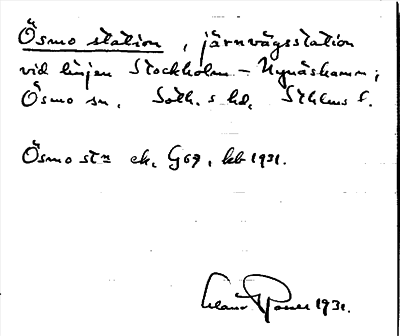 Ösmo station, järnvägsstation
vid linjen Stockholm - Nynäshamn;
Ösmo sn. Soth. s hd. Sthlms l.
Ösmo stn ek. G 69, kb 1931.
1931.